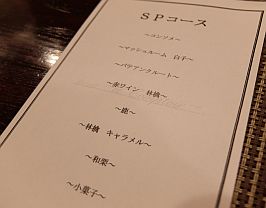 ＳＰコース
～コンソメ～
～マッシュルーム　白子～
～パテアンクルート～
～赤ワイン　林檎～
～鹿～
～林檎　キャラメル～
～和栗～
～小菓子～